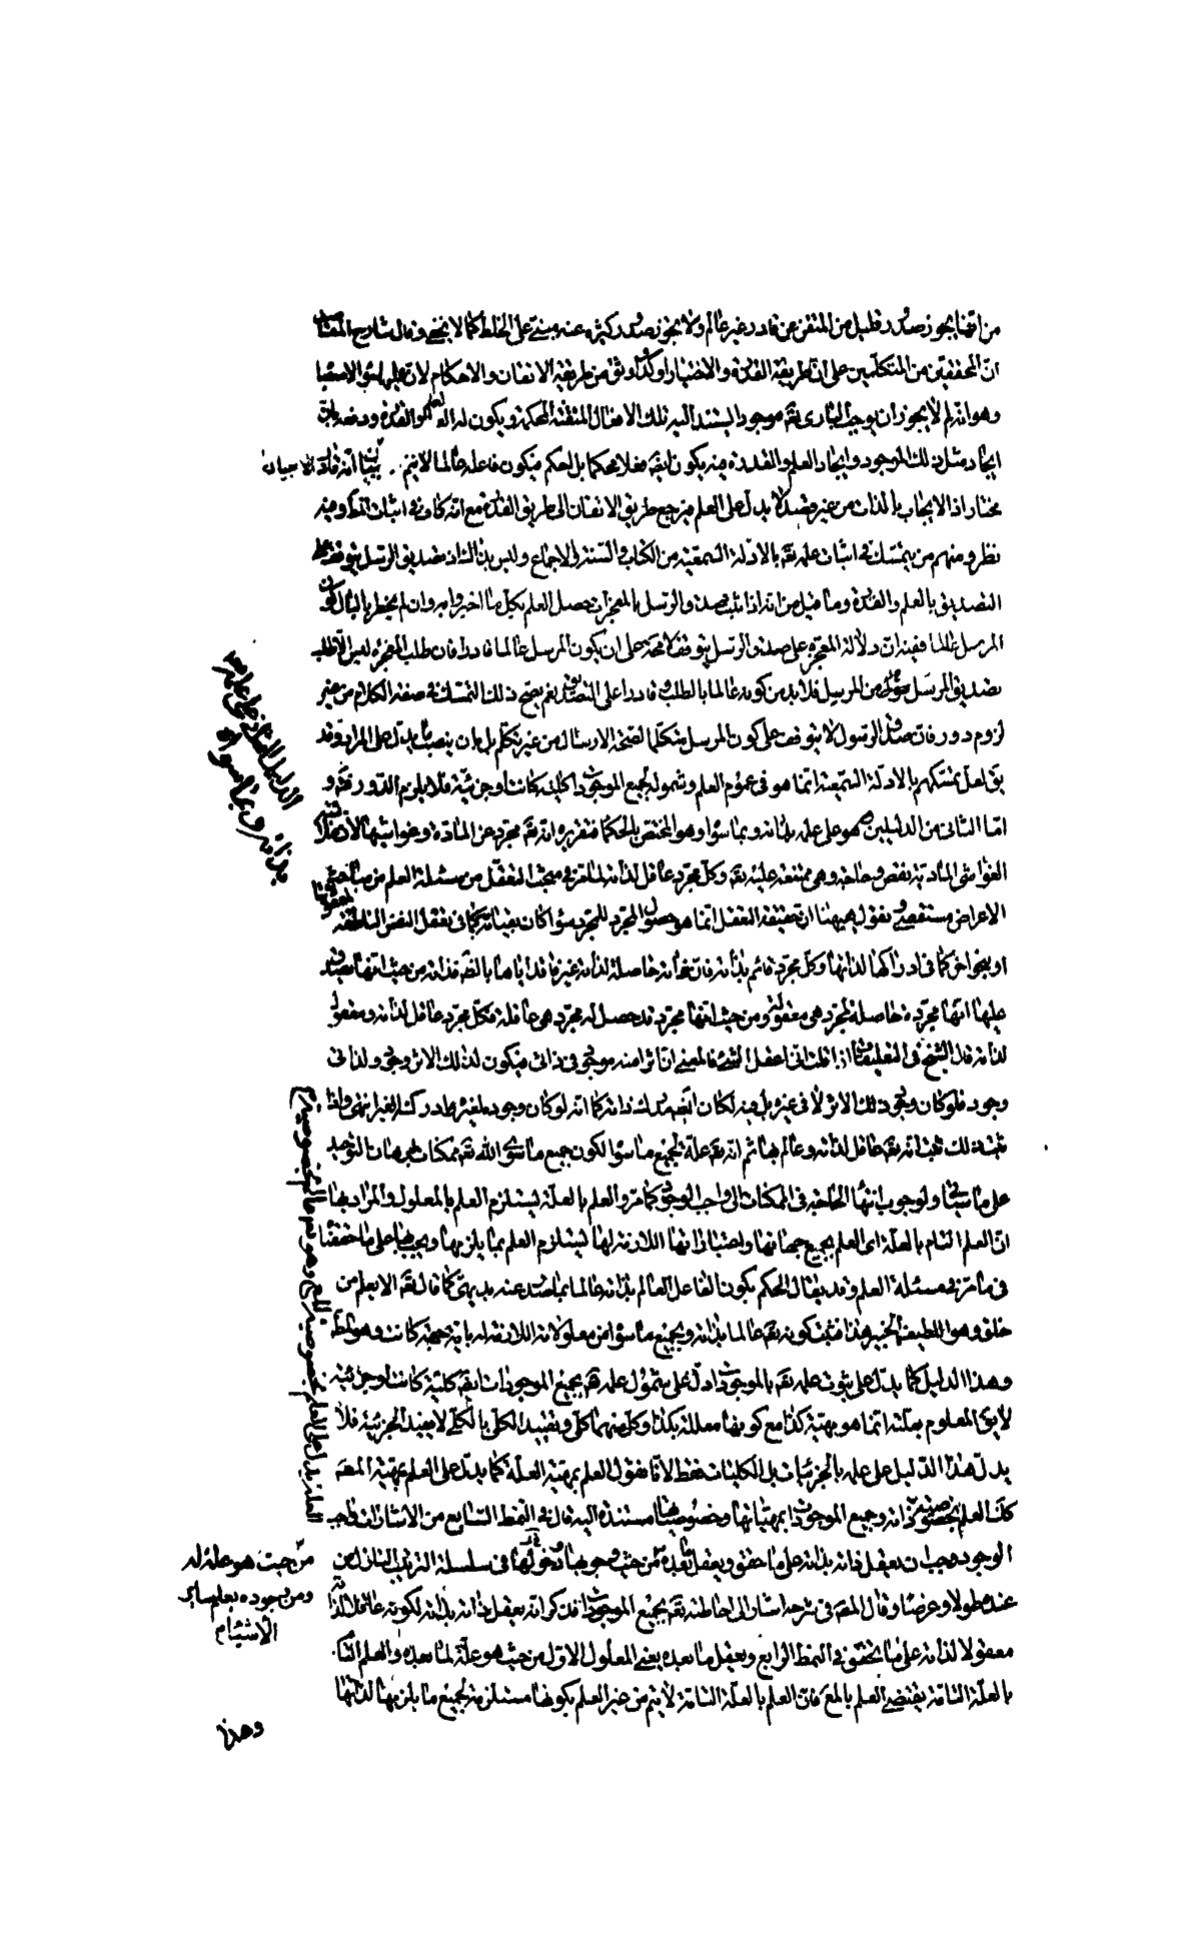 من انه انما يجوز صدور قليل من المتقن عن قادر غير عالم ولا يجوز صدور كثير عنه مبنى على الخلط كما لا يخفى وقال شارح المقاصد
ان المحققين من المتكلمين على ان طريقة القدرة والاختيار اوكد واوثق من طريقة الاتقان والاحكام لان عليها
وهو انه لم لا يجوز ان يوجب البارى تع موجودا يستند اليه تلك الافعال المتقنة المحكمة ويكون له العلم والقدرة ودفعه بان
ايجاد مثل ذلك الموجود وايجاد العلم والقدرة فيه يكون ايضا فعلا محكما بل احكم فيكون فاعله عالما لا يتم . ببيان انه قادر
مختار اذ الايجاب بالذات من غير قصد لا يدل على العلم فيرجع طريق الاتقان الى طريق القدرة مع انه كاف فى اثبات المط وفيه
نظر ومنهم من يتمسك فى اثبات علمه تع بالادلة السمعية من الكتاب والسنة والاجماع وليس بذاك اذ تصديق الرسل يتوقف على
التصديق بالعلم والقدرة وما قيل من انه اذا ثبت صدق الرسل بالمعجزات حصل العلم بكل ما اخبروا به وان لم يخطر بالبال كون
المرسل عالما ففيه ان دلالة المعجزة على صدق الرسل يتوقف على ان يكون المرسل عالما قادرا فان طلب المعجزة ليس الا طلب
تصديق الرسل من المرسل فلا بد من كونه عالما بالطلب وقادرا على التصديق نعم يصح ذلك التمسك فى صفة الكلام من غير
لزوم دور فان صدق الرسول لا يتوقف على كون المرسل متكلما لصحة الارسال من غير تكلم بل بان ينصب ما يدل على المراد وقد
يق لعل تمسكهم بالادلة السمعية انما هو فى عموم العلم وشموله لجميع الموجودات كلية كانت او جزئية فلا يلزم الدور فتدبر و
اما الثانى من الدليلين وهو على علمه بذاته وبما سواه وهو المختص بالحكماء فتقريره انه تع مجرد عن المادة وغواشيها لان
الغواشى المادية نقص وحاجة وهى ممتنعة عليه تع وكل مجرد عاقل لذاته لما تقرر فى مبحث التعقل من مسئلة العلم من مباحث
الاعراض مستقصى ونقول ههنا ان حقيقة التعقل انما هو حصول المجرد للمجرد سواء كان بعينه كما فى تعقل النفس الناطقة
او بنحو اخر كما فى ادراكها لذاتها وكل مجرد قائم بذاته فان ذاته حاصلة لذاته غير فاقد اياها بالضرورة فذاته من حيث انها يصدق
عليها انها مجردة حاصلة لمجرد هى معقولة ومن حيث انها مجرد قد حصل له مجرد هى عاقلة فكل مجرد عاقل لذاته ومعقول
لذاته قال الشيخ فى التعليقات اذا قلت انى اعقل الشئ فالمعنى ان اثرا منه موجود فى ذاتى فيكون لذلك الاثر وجود ولذاتى
وجود فلو كان وجود ذلك الاثر لا فى غيره بل فيه لكان ايضا يدرك ذاته كما انه لو كان وجوده لغيره ادركه الغير انتهى واذا
ثبت ذلك ثبت انه تع عاقل لذاته وعالم بها ثم انه تع علة لجميع ما سواه لكون جميع ما سوى الله تع ممكنات لبرهان التوحيد
على ما سياتى ولوجوب انتهاء الحاجة فى الممكنات الى واجب الوجود كما مر والعلم بالعلة يستلزم العلم بالمعلول والمراد بهذا
ان العلم التام بالعلة اى العلم بجميع جهاتها واعتباراتها اللازمة لها يستلزم العلم بما يلزمها ويجب بها على ما حققنا
فى ما مر فى مسئلة العلم وقد يقال الحكم بكون الفاعل العالم بذاته عالما بما صدر عنه بديهى كما قال تع الا يعلم من
خلق وهو اللطيف الخبير وهذا فثبت كونه تع عالما بذاته وبجميع ما سواه من معلولاته اللازمة له باية جهة كانت وهو المط
وهذا الدليل كما يدل على ثبوت علمه تع بالموجودات ادل على شمول علمه تع بجميع الموجودات ايضا كلية كانت او جزئية
لا يق المعلوم بعلته انما هو مهية كذا مع كونها معللة بكذا وكل منهما كلى وتقييد الكلى بالكلى لا يفيد الجزئية فلا
يدل هذا الدليل على علمه بالجزئيات بل الكليات فقط لانا نقول العلم بمهية العلة كما يدل على العلم بمهية المعلول
كذلك العلم بخصوصية ذاته وجميع الموجودات بمهياتها وخصوصياتها مستندة اليه قال فى النمط السابع من الاشارات واجب
الوجود يجب ان يعقل ذاته بذاته على ما حقق ويعقل ما بعده من حيث وجوبها فى سلسلة الترتيب النازل من
عنده طولا وعرضا وقال المصنف فى شرحه اشار الى احاطته تع بجميع الموجودات فذكر انه يعقل ذاته بذاته لكونه عاقلا لذاته
معقولا لذاته على ما تحقق فى النمط الرابع ويعقل ما بعده يعنى المعلول الاول من حيث هو علة لما بعده والعلم التام
بالعلة التامة يقتضى العلم بالمعلول فان العلم بالعلة التامة لا يتم من غير العلم بكونها مستلزمة لجميع ما يلزمها لذاتها
وهذا
من حيث هو علة له
ومن وجوده يعلم ساير
الاشياء